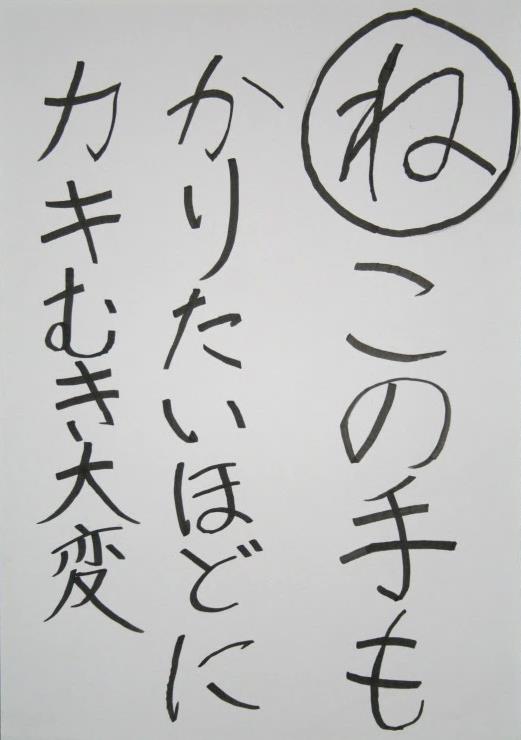 ねこの手も
かりたいほどに
カキむき大変